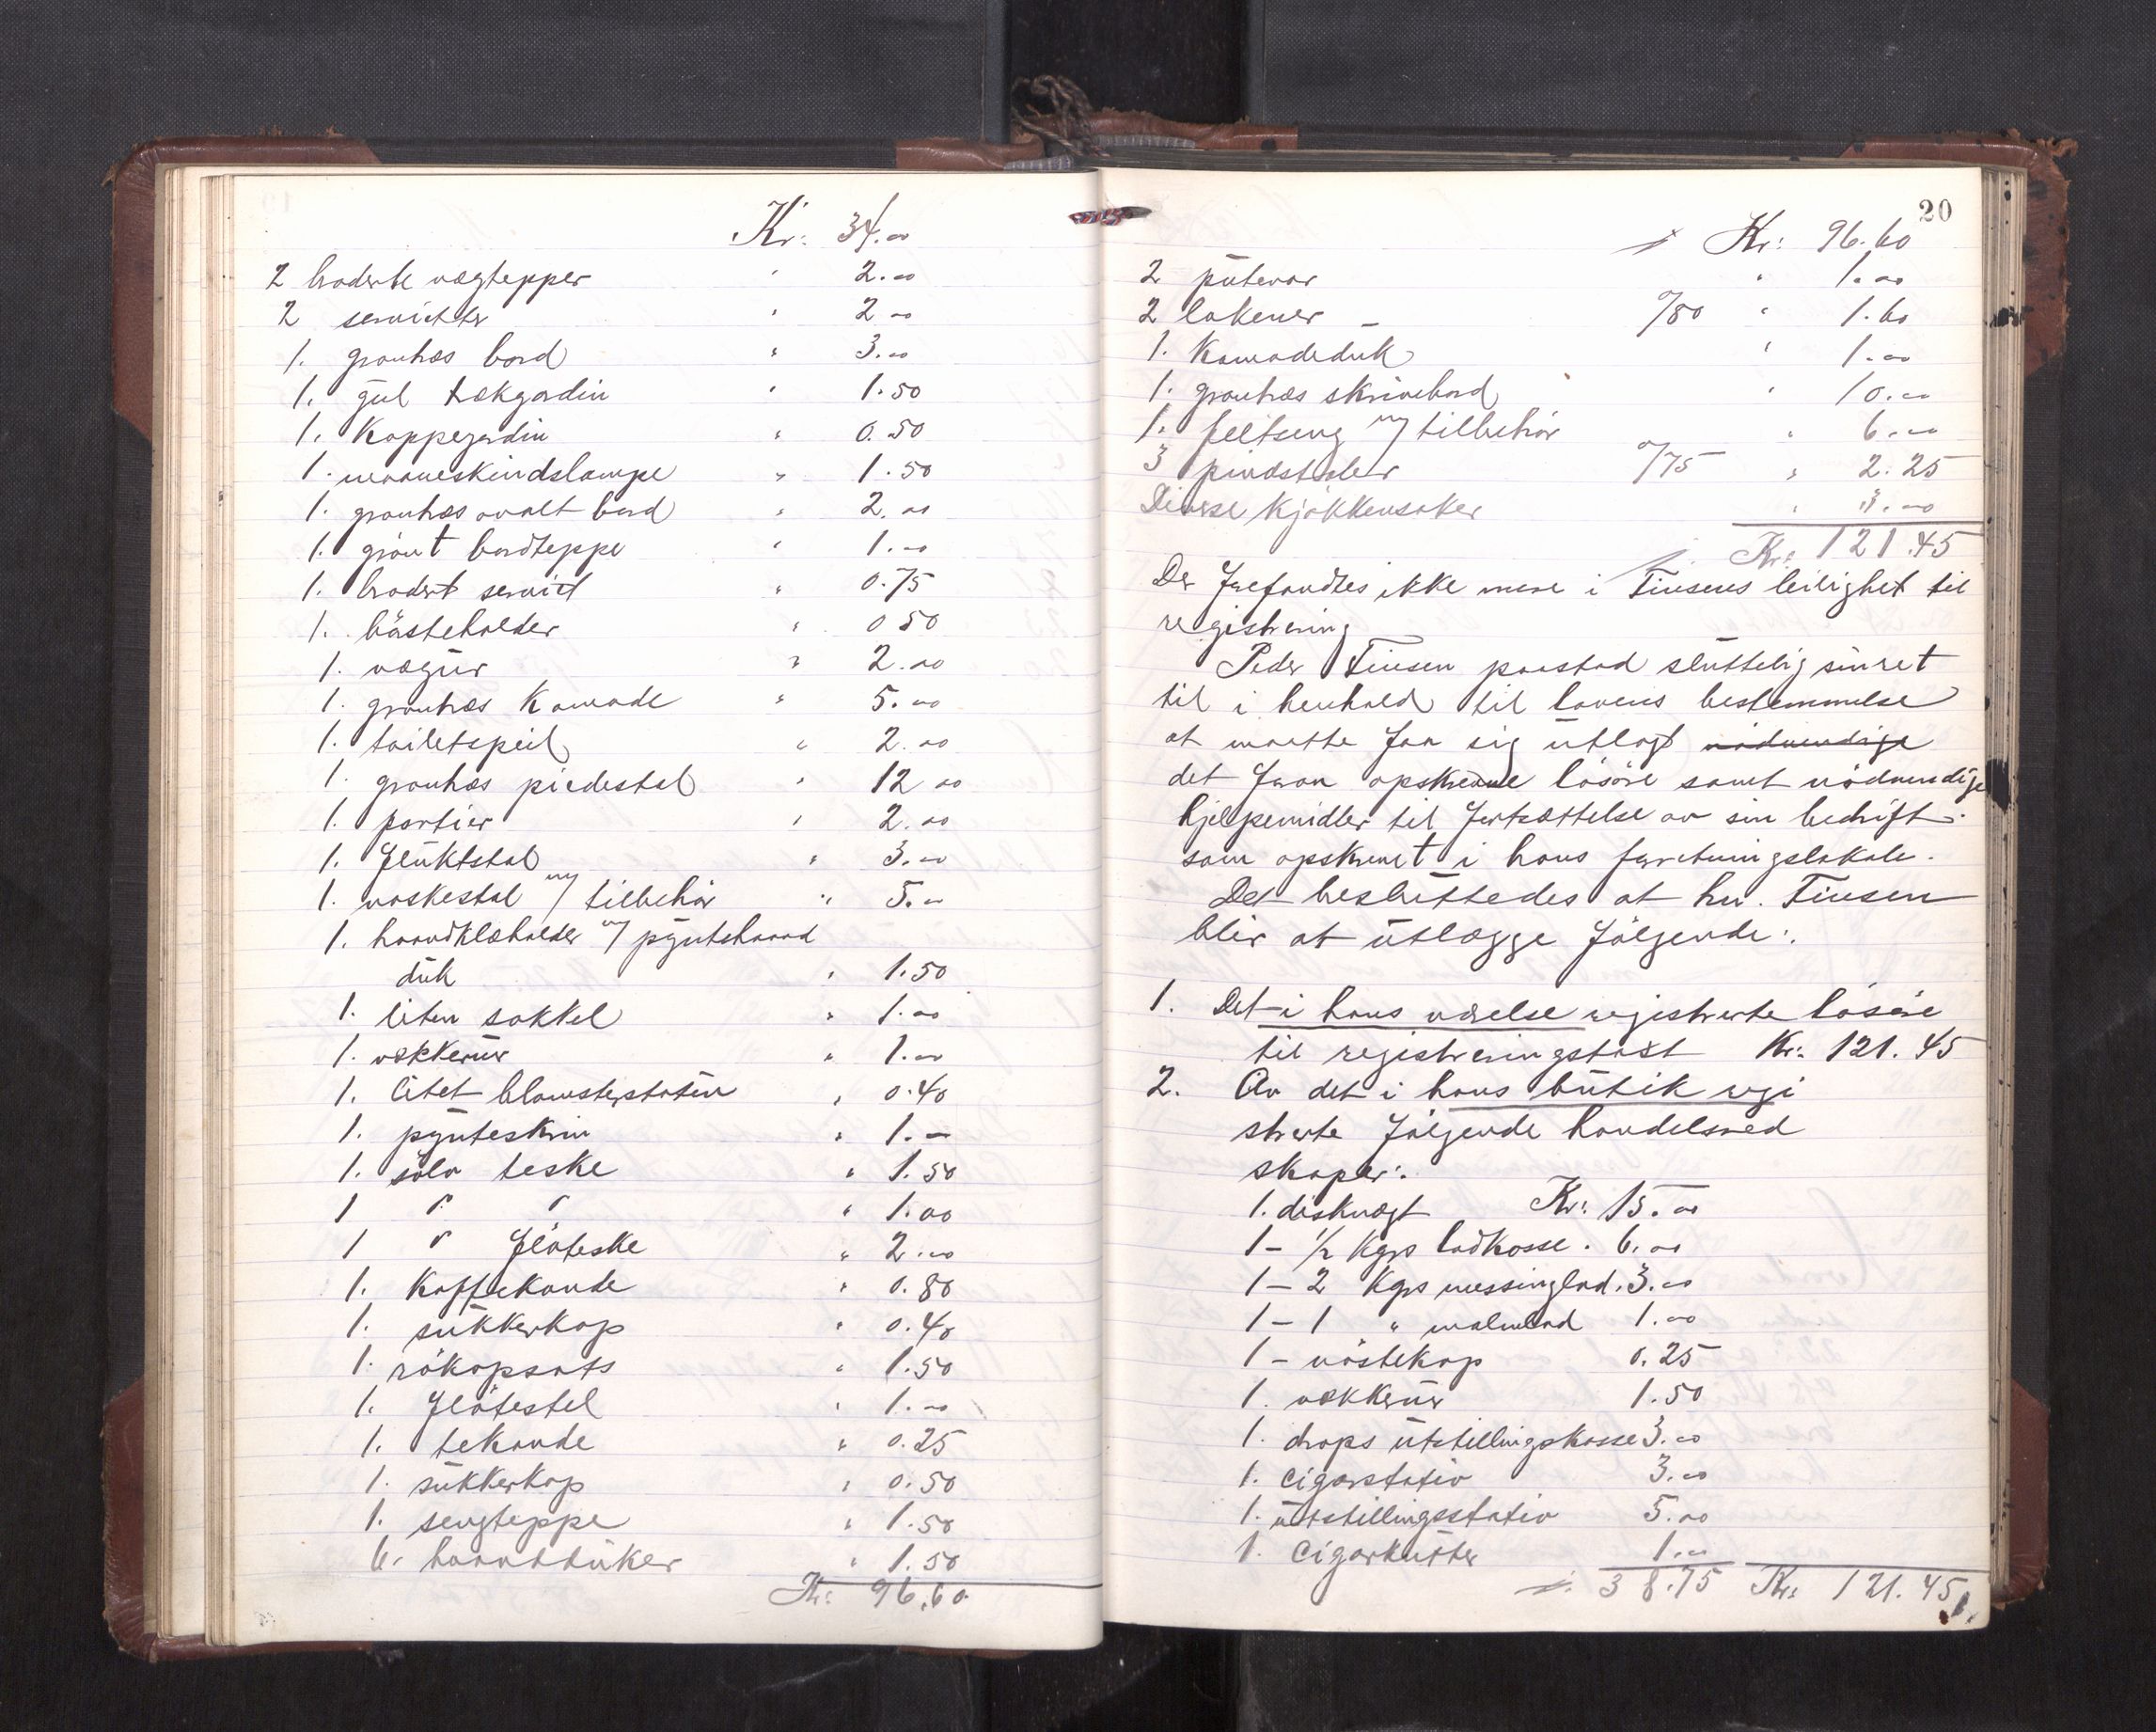 Kr: 34.00
2 broderte vægtepper " 2.00
2 servietter " 2 00
1. grantræs bord " 3.00
1. gul rækgardin " 1.50
1. Kappegardin " 0.50
1. marineskindslampe " 1.50
1. grantræs ovalt bord " 2.00
1. grönt bordteppe " 1.00
1. brodert serviet " 0.75
1. börsteholder " 0 50
1. vægur " 2.00
1. grantræs Komode " 5.00
1. toiletspeil " 2.00
1. grantræs piedestal " 12 00
1. portier " 2.00
1. fluktstol " 3.00
1. vaskestol m/ tilbehör " 5.00
1. haandklæholder m/ pyntehaand
duk " 1.50
1. liten sokkel " 1.00
1. vækkerur " 1.00
1. litet blomsterstativ " 0.40
1. pynteskrin " 1.—
1. sölv teske " 1.50
1 " " " 1.00
1 " flöteske " 2.00
1. Kaffekande " 0.80
1. sukkerkop " 0.40
1. rökopsats " 1.50
1. flötestel " 1.00
1. tekande " 0.25
1. sukkerkop " 0.50
1. sengteppe " 1.50
6. haandduker " 1.50
Kr: 96.60
20
Kr: 96.60
2 putevar " 1.00
2 lakener — a/80 " 1.60
1. Komodeduk " 1.00
1. grantræs skrivebord " 10.00
1. feltseng m/ tilbehör " 6.00
3 pindstoler a/75 " 2.25
Diverse kjökkensaker " 3.00
Kr: 121.45
Der forefandtes ikke mere i Tinsens leilighet til
registrering
Peder Tinsen paastod sluttelig sin ret
til i henhold til lovens bestemmelse
at maatte faa sig utlagt nödvendige
det foran opskrevne lösöre samt nödvendige
hjelpemidler til fortsættelse av sin bedrift.
som opskrevet i hans forretningslokale.
Det besluttedes at hr. Tinsen
blir at utlægge fölgende:
1. Det i hans værelse registrerte lösöre
til registreringstakst Kr: 121.45
2. Av det i hans butik regi
strerte fölgende handelsred
skaper:
1. diskvægt Kr: 15.00
1 - 1/2 Kgrs lodkasse. 6.00
1 - 2 Kgrs messinglod. 3.00
1 - 1 " malmlod 1.00
1 - vöstekop 0.25
1. vækkerur 1.50
1. drops utstillingskasse 3.00
1. cigarstativ 3.00
1. utstillingsstativ 5.00
1. cigarkutter 1.00
38.75 Kr: 121.45